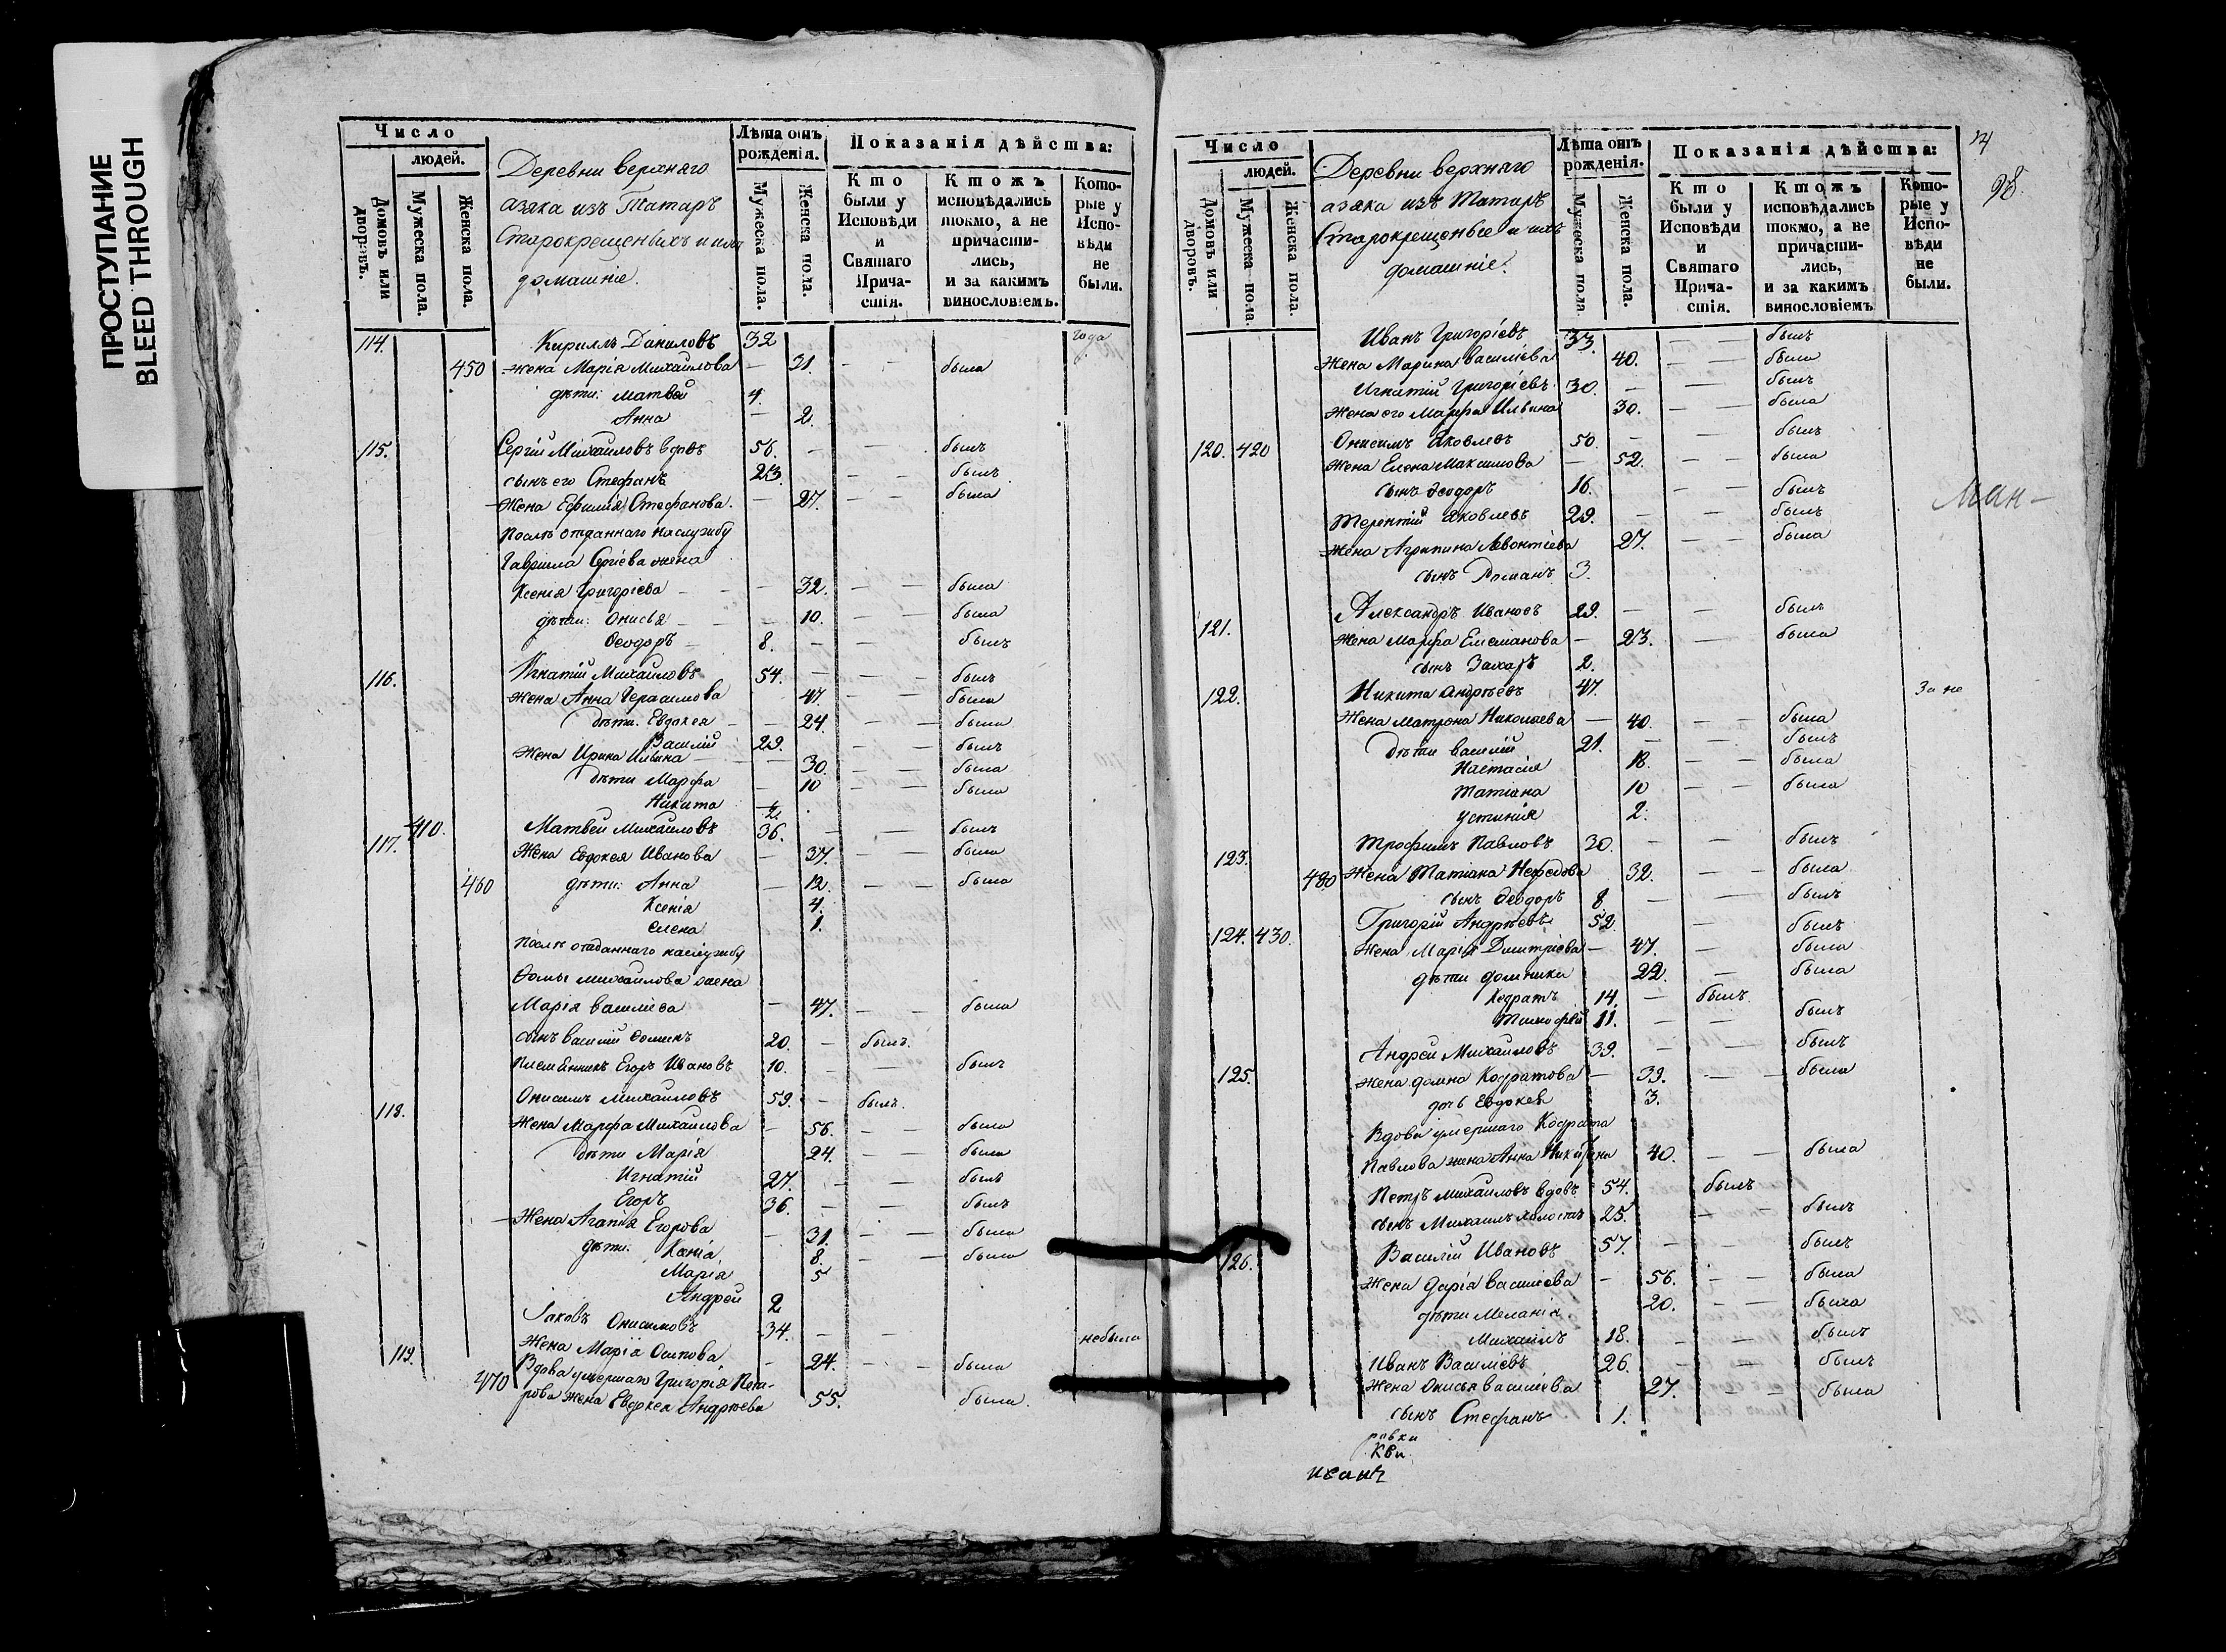 ПРОСТУПАНИЕ
BLEED THROUGH
Число
людей.
Домовъ или дворовъ.
Мужеска пола.
Женска пола.
Деревни верхняго
азяка изъ Татаръ
Старокрещеныхъ и ихъ
домашніе.
Лѣта отъ рожденія.
Мужеска пола.
Женска пола.
Показанія дѣйства:
Кто были у Исповѣди и Святаго Причастія.
Ктожъ исповѣдались токмо, а не причастились, и за какимъ винословіемъ.
Которые у Исповѣди не были.
114. Кириллъ Даниловъ 32 года
450 жена Марія Михайлова — 31. — — была
дѣти: Матвей 4.
Анна — 2.
115. Сергій Михайловъ вдовъ 56. — — былъ
сынъ его Стефанъ 23. — — былъ
Жена Ефимія Стефанова. — 27. — — была
Послѣ отданнаго на службу
Гаврила Сергіева жена
Ксенія Григоріева — — 32. — — была
дѣти: Онисья — — 10. — — была
Ѳеодоръ — 8. — — былъ
116. Игнатій Михайловъ 54. — — — былъ
Жена Анна Герасимова 47. — — была
Дѣти: Евдокея — — 24. — — была
Василій 29. — — былъ
Жена Ирина Ильина — — 30. — — была
Дѣти Марфа — 10 — — была
Никита 2.
117. 410. Матвей Михайловъ 36. — — былъ
Жена Евдокея Иванова — 37. — — была
460 дѣти: Анна — 12. — — была
Ксенія 4.
Елена 1.
Послѣ отданнаго на службу
Ѳомы михайлова жена
Марія васильева — 47. — — была
сынъ василій Ѳоминъ 20. — былъ.
племянникъ Егоръ Ивановъ 10. — — былъ
118. Онисимъ михайловъ 59. — былъ.
Жена Марфа Михайлова — 56. — — была
Дѣти Марія 24. — — была
Игнатій 27. — — былъ
Егоръ 36. — — былъ
Жена Агапія Егорова — 31. — — была
дѣти: Ксенія 8. — — была
Марія 5
Андрей 2
Іаковъ Онисимовъ 34. — — небыли
119. Жена Марія Осипова — 24. — — была
470 Вдова умершаго Григорія Пет-
рова жена Евдокея Андрѣева 55. была.
14
98.
Число
людей.
Домовъ или дворовъ.
Мужеска пола.
Женска пола.
Деревни верхняго
азяка изъ Татаръ
Старокрещеные и ихъ
домашніе.
Лѣта отъ рожденія.
Мужеска пола
Женска пола.
Показанія дѣйства:
Кто были у Исповѣди и Святаго Причастія.
Ктожъ исповѣдались токмо, а не причастились, и за какимъ винословіемъ
Которые у Исповѣди не были.
Иванъ Григоріевъ 33. — — былъ
Жена Марина василіева 40. — — была
Игнатій Григоріевъ 30. — — былъ
Жена его Марфа Ильина 30. — — была
120. 420 Онисимъ Яковлевъ 50. — — былъ
Жена Елена Максимова — 52. — — была
сынъ Ѳеодоръ 16. — былъ
Терентій Яковлевъ 29. — — былъ
Ман-
Жена Агрипина Левонтіева 27. — — была
сынъ Романъ 3.
121. Александръ Ивановъ 29. — — былъ
Жена Марфа Емельянова — 23. — была
сынъ Захаръ 2.
122. Никита Андрѣевъ 47. За не
Жена Матрона Николаева — 40. — — была
Дѣти василій 21. — — былъ
Настасія 18. — — была
Татіана 10 — — была
Устинія 2.
123. Трофимъ Павловъ 30. — — былъ
480 Жена Татіана Нефедова 32. — — была
сынъ Ѳеодоръ 8 — — былъ
124. 430. Григорій Андрѣевъ 52. — былъ
Жена Марія Дмитріева — 47. — была
дѣти домника 22. — была
Кодратъ 14. — былъ
Тимофей 11. — — былъ
Андрей Михайловъ 39. — — былъ
125. Жена домна Кодратова — 39. — — была
дчь Евдокея 3.
Вдова умершаго Кодрата
Павлова жена Анна Никитина 40. — — была
Петръ михайловъ вдовъ 54. былъ
сынъ Михаилъ холостъ 25. — — былъ
126. Василій Ивановъ 57. — — былъ
Жена Дарія василіева — 56. — — была
дѣти Меланія. 20. — — была
Михаилъ 18. — — былъ
Иванъ Василіевъ 26. — — былъ
Жена Онисья василіева 27. — — была
сынъ Стефанъ 1.